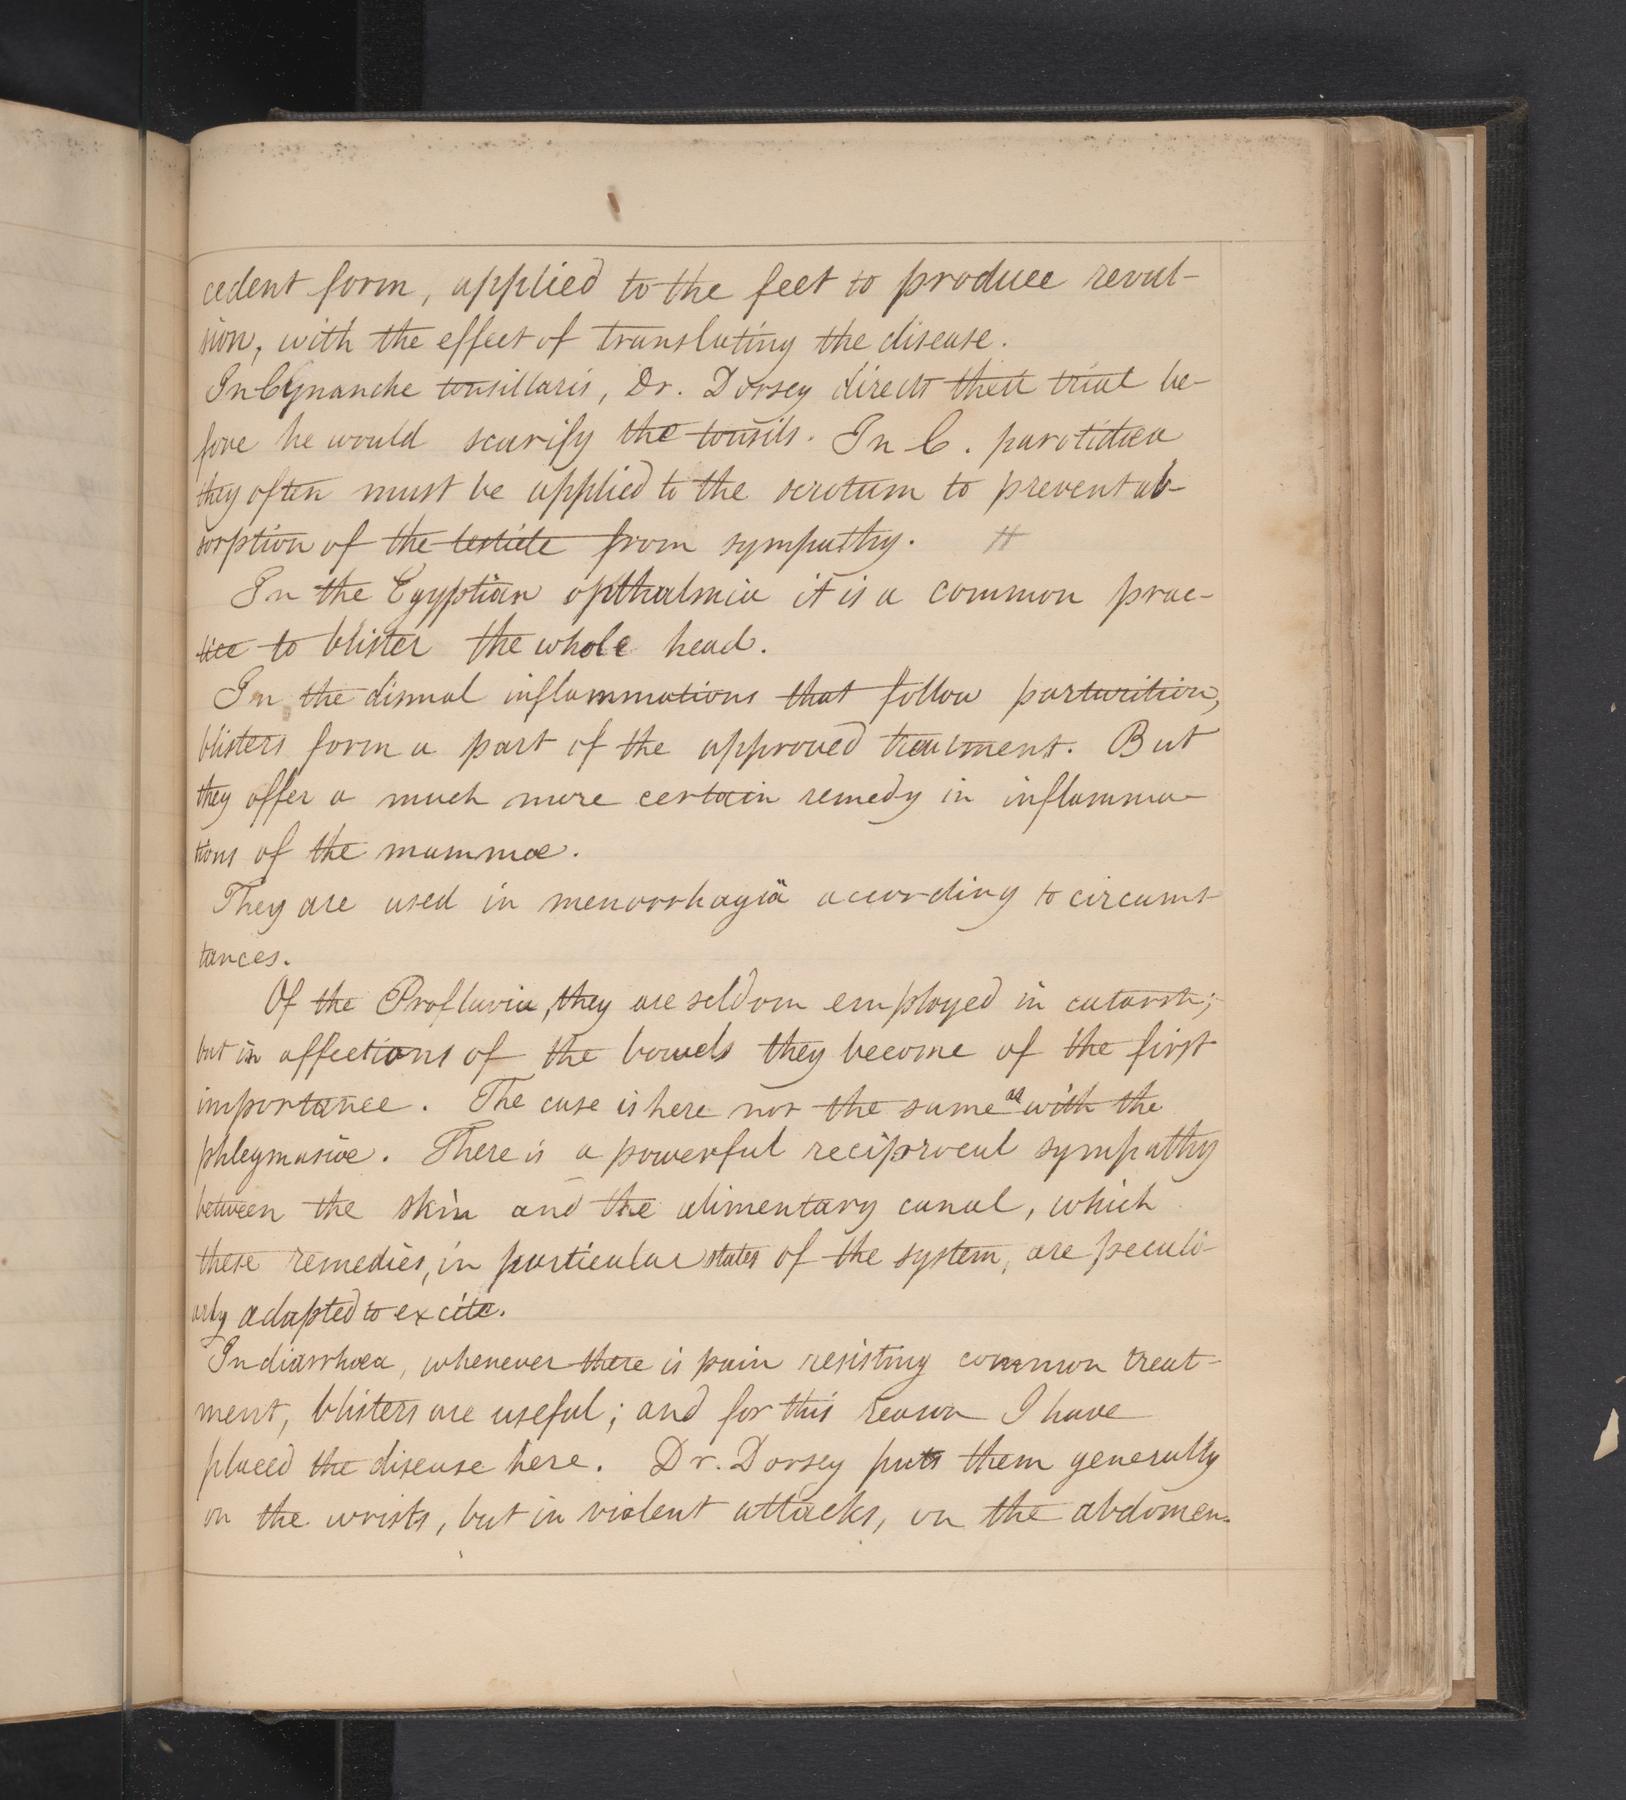 cedent form, applied to the feet to produce revul-
sion, with the effect of translating the disease.
In Cynanche tonsillaris, Dr. Dorsey directs their trial be-
fore he would scarify the tonsils. In C. parotidaea
they often must be applied to the scrotum to prevent ab-
sorption of the testicle from sympathy. #
In the Egyptian opthalmia it is a common prac-
tice to blister the whole head.
In the dismal inflammations that follow parturition,
blisters form a part of the approved treatment. But
they offer a much more certain remedy in inflamma-
tions of the mammae.
They are used in menorrhagia according to circums-
tances.
Of the Profluvia, they are seldom employed in catarrh;
but in affections of the bowels they become of the first
importance. The case is here not the same as with the
phlegmasiae. There is a powerful reciprocal sympathy
between the skin and the alimentary canal, which
these remedies, in particular states of the system, are peculi-
arly adapted to excite.
In diarrhoea, whenever there is pain resisting common treat-
ment, blisters are useful; and for this reason I have
placed the disease here. Dr. Dorsey puts them generally
on the wrists, but in violent attacks, on the abdomen.